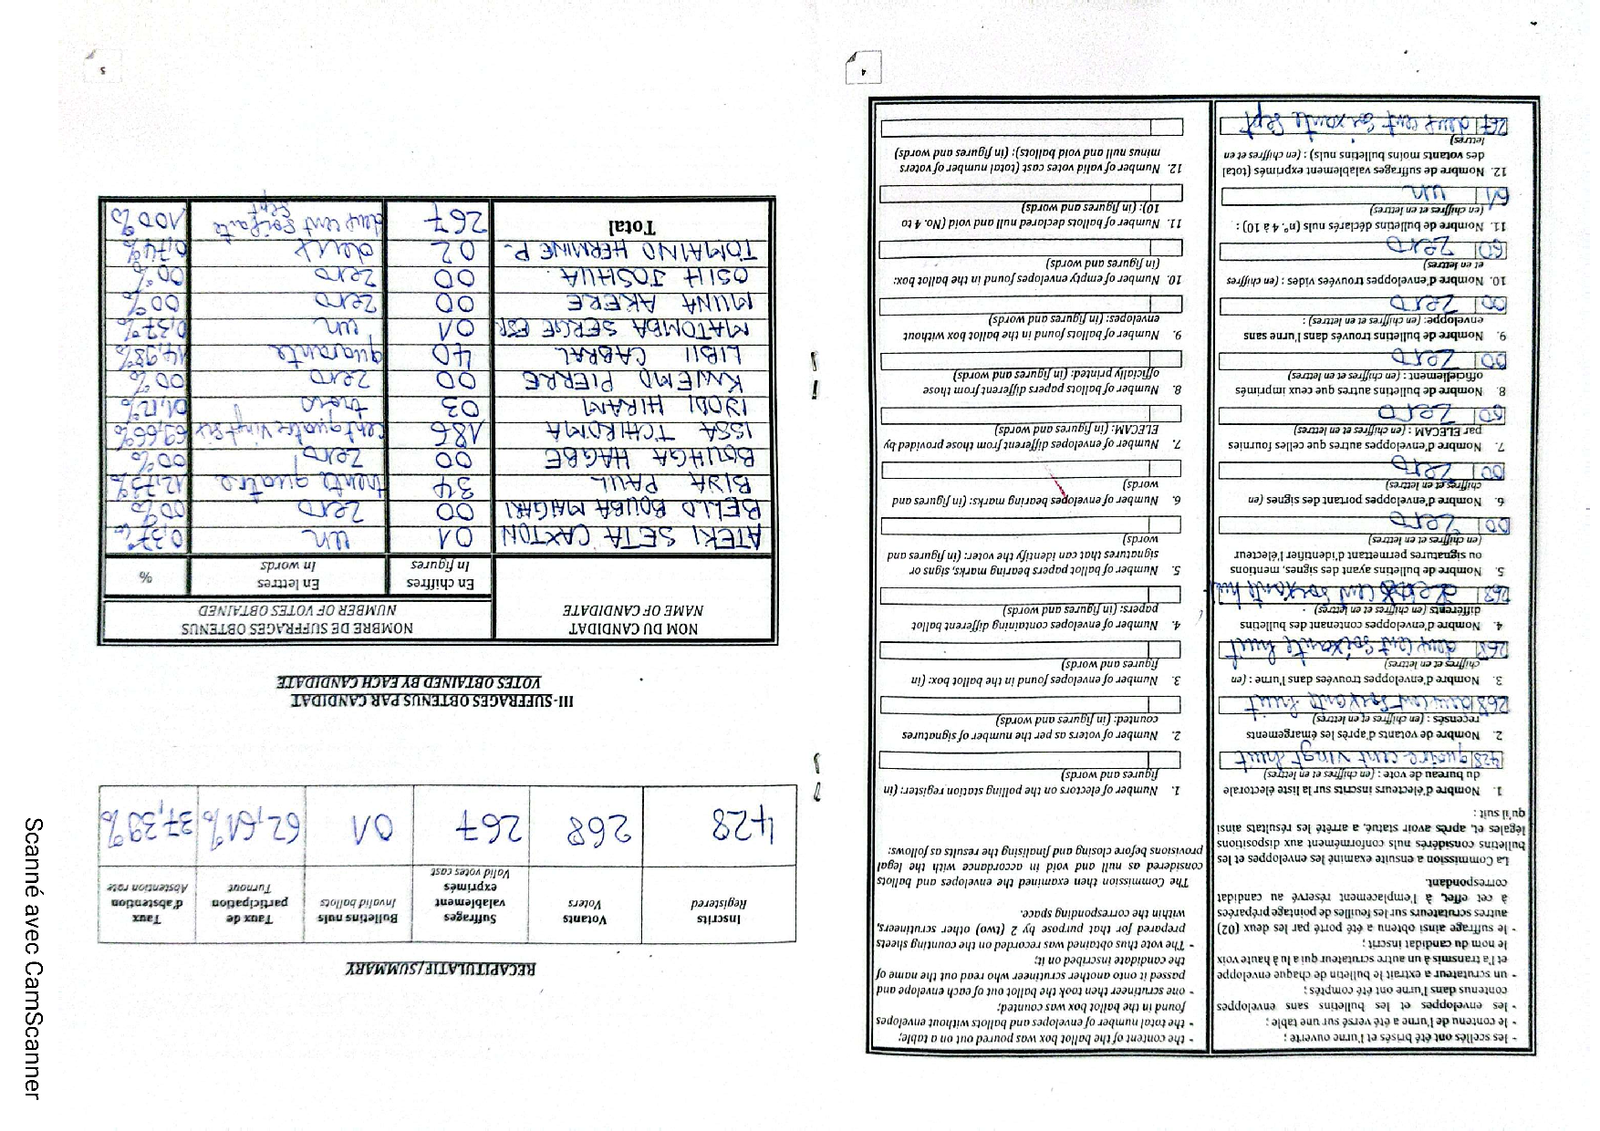 - les scellés ont été brisés et l'urne ouverte ;
- le contenu de l'urne a été versé sur une table ;
- les enveloppes et les bulletins sans enveloppes
contenus dans l'urne ont été comptés ;
- un scrutateur a extrait le bulletin de chaque enveloppe
et l'a transmis à un autre scrutateur qui a lu à haute voix
le nom du candidat inscrit ;
- le suffrage ainsi obtenu a été porté par les deux (02)
autres scrutateurs sur les feuilles de pointage préparées
à cet effet, à l'emplacement réservé au candidat
correspondant.
La Commission a ensuite examiné les enveloppes et les
bulletins considérés nuls conformément aux dispositions
légales et, après avoir statué, a arrêté les résultats ainsi
qu'il suit :
1. Nombre d'électeurs inscrits sur la liste électorale
du bureau de vote : (en chiffres et en lettres)
428 quatre cent vingt huit
2. Nombre de votants d'après les émargements
recensés : (en chiffres et en lettres)
268 deux cent soixante huit
3. Nombre d'enveloppes trouvées dans l'urne : (en
chiffres et en lettres)
268 deux cent soixante huit
4. Nombre d'enveloppes contenant des bulletins
différents (en chiffres et en lettres) :
268 cent soixante huit
5. Nombre de bulletins ayant des signes, mentions
ou signatures permettant d'identifier l'électeur
(en chiffres et en lettres)
00 zero
6. Nombre d'enveloppes portant des signes (en
chiffres et en lettres)
00 zero
7. Nombre d'enveloppes autres que celles fournies
par ELECAM : (en chiffres et en lettres)
00 zero
8. Nombre de bulletins autres que ceux imprimés
officiellement : (en chiffres et en lettres)
00 zero
9. Nombre de bulletins trouvés dans l'urne sans
enveloppe: (en chiffres et en lettres) :
00 zero
10. Nombre d'enveloppes trouvées vides : (en chiffres
et en lettres)
00 zero
11. Nombre de bulletins déclarés nuls (n°. 4 à 10) :
(en chiffres et en lettres)
01 un
12. Nombre de suffrages valablement exprimés (total
des votants moins bulletins nuls) : (en chiffres et en
lettres)
267 deux cent soixante sept
- the content of the ballot box was poured out on a table;
- the total number of envelopes and ballots without envelopes
found in the ballot box was counted;
- one scrutineer then took the ballot out of each envelope and
passed it onto another scrutineer who read out the name of
the candidate inscribed on it;
- The vote thus obtained was recorded on the counting sheets
prepared for that purpose by 2 (two) other scrutineers,
within the corresponding space.
The Commission then examined the envelopes and ballots
considered as null and void in accordance with the legal
provisions before closing and finalising the results as follows:
1. Number of electors on the polling station register: (in
figures and words)
2. Number of voters as per the number of signatures
counted: (in figures and words)
3. Number of envelopes found in the ballot box: (in
figures and words)
4. Number of envelopes containing different ballot
papers: (in figures and words)
5. Number of ballot papers bearing marks, signs or
signatures that can identify the voter: (in figures and
words)
6. Number of envelopes bearing marks: (in figures and
words)
7. Number of envelopes different from those provided by
ELECAM: (in figures and words)
8. Number of ballots papers different from those
officially printed: (in figures and words)
9. Number of ballots found in the ballot box without
envelopes: (in figures and words)
10. Number of empty envelopes found in the ballot box:
(in figures and words)
11. Number of ballots declared null and void (No. 4 to
10): (in figures and words)
12. Number of valid votes cast (total number of voters
minus null and void ballots): (in figures and words)
4
RECAPITULATIF/SUMMARY
Inscrits Registered | Votants Voters | Suffrages valablement exprimés Valid votes cast | Bulletins nuls Invalid ballots | Taux de participation Turnout | Taux d'abstention Abstention rate
428 | 268 | 267 | 01 | 62,61% | 37,39%
III- SUFFRAGES OBTENUS PAR CANDIDAT
VOTES OBTAINED BY EACH CANDIDATE
NOM DU CANDIDAT NAME OF CANDIDATE | NOMBRE DE SUFFRAGES OBTENUS NUMBER OF VOTES OBTAINED
En chiffres In figures | En lettres In words | %
ATEKI SETA CAXTON | 01 | un | 0,37%
BELLO BOUBA MAIGARI | 00 | zero | 00%
BIYA PAUL | 34 | trente quatre | 12,73%
BOUHGA HAGBE | 00 | zero | 00%
ISSA TCHIROMA | 186 | cent quatre vingt six | 69,66%
IYODI HIRAM | 03 | trois | 01,12%
KWEMO PIERRE | 00 | zero | 00%
LIBII CABRAL | 40 | quarante | 14,98%
MATOMBA SERGE ESP | 01 | un | 0,37%
MUNA AKERE | 00 | zero | 00%
OSIH JOSHUA | 00 | zero | 00%
TOMAINO HERMINE P. | 02 | deux | 0,74%
Total | 267 | deux cent soixante sept | 100%
5
Scanné avec CamScanner